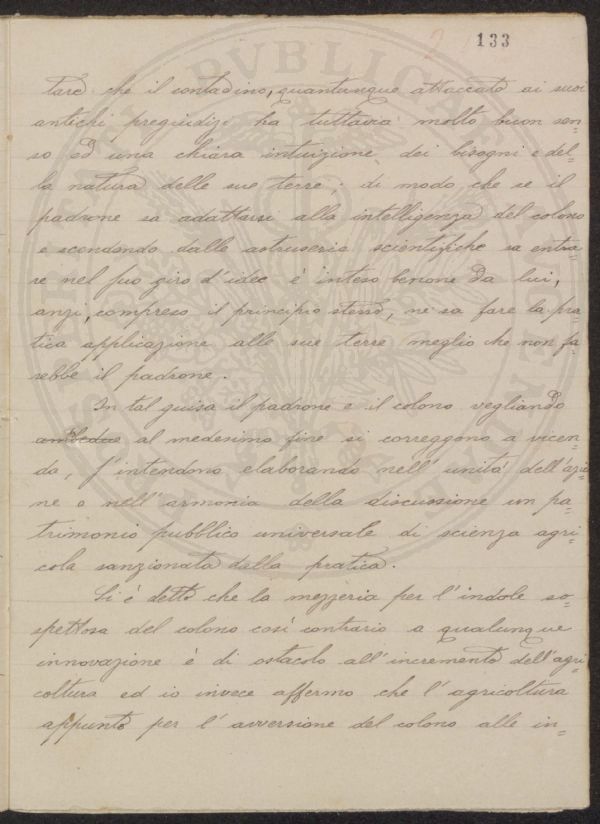 2 133
tare che il contadino, quantunque attaccato ai suoi
antichi pregiudizi ha tuttavia molto buon sen=
so ed una chiara intuizione dei bisogni e del=
la natura delle sue terre; di modo che se il
padrone sa adattarsi alla intelligenza del colono
e scendendo dalle astruserie scientifiche sa entra=
re nel suo giro d'idee è inteso benone da lui,
anzi, compreso il principio stesso, ne sa fare la pra=
tica applicazione alle sue terre meglio che non fa=
rebbe il padrone.
In tal guisa il padrone e il colono vegliando
ambedue al medesimo fine si correggono a vicen=
da, s'intendono elaborando nell'unità dell'azio=
ne o nell'armonia della discussione un pa=
trimonio pubblico universale di scienza agri=
cola sanzionata dalla pratica.
Si è detto che la mezzeria per l'indole so=
spettosa del colono così contrario a qualunque
innovazione è di ostacolo all'incremento dell'agri=
coltura ed io invece affermo che l'agricoltura
appunto per l'avversione del colono alle in=